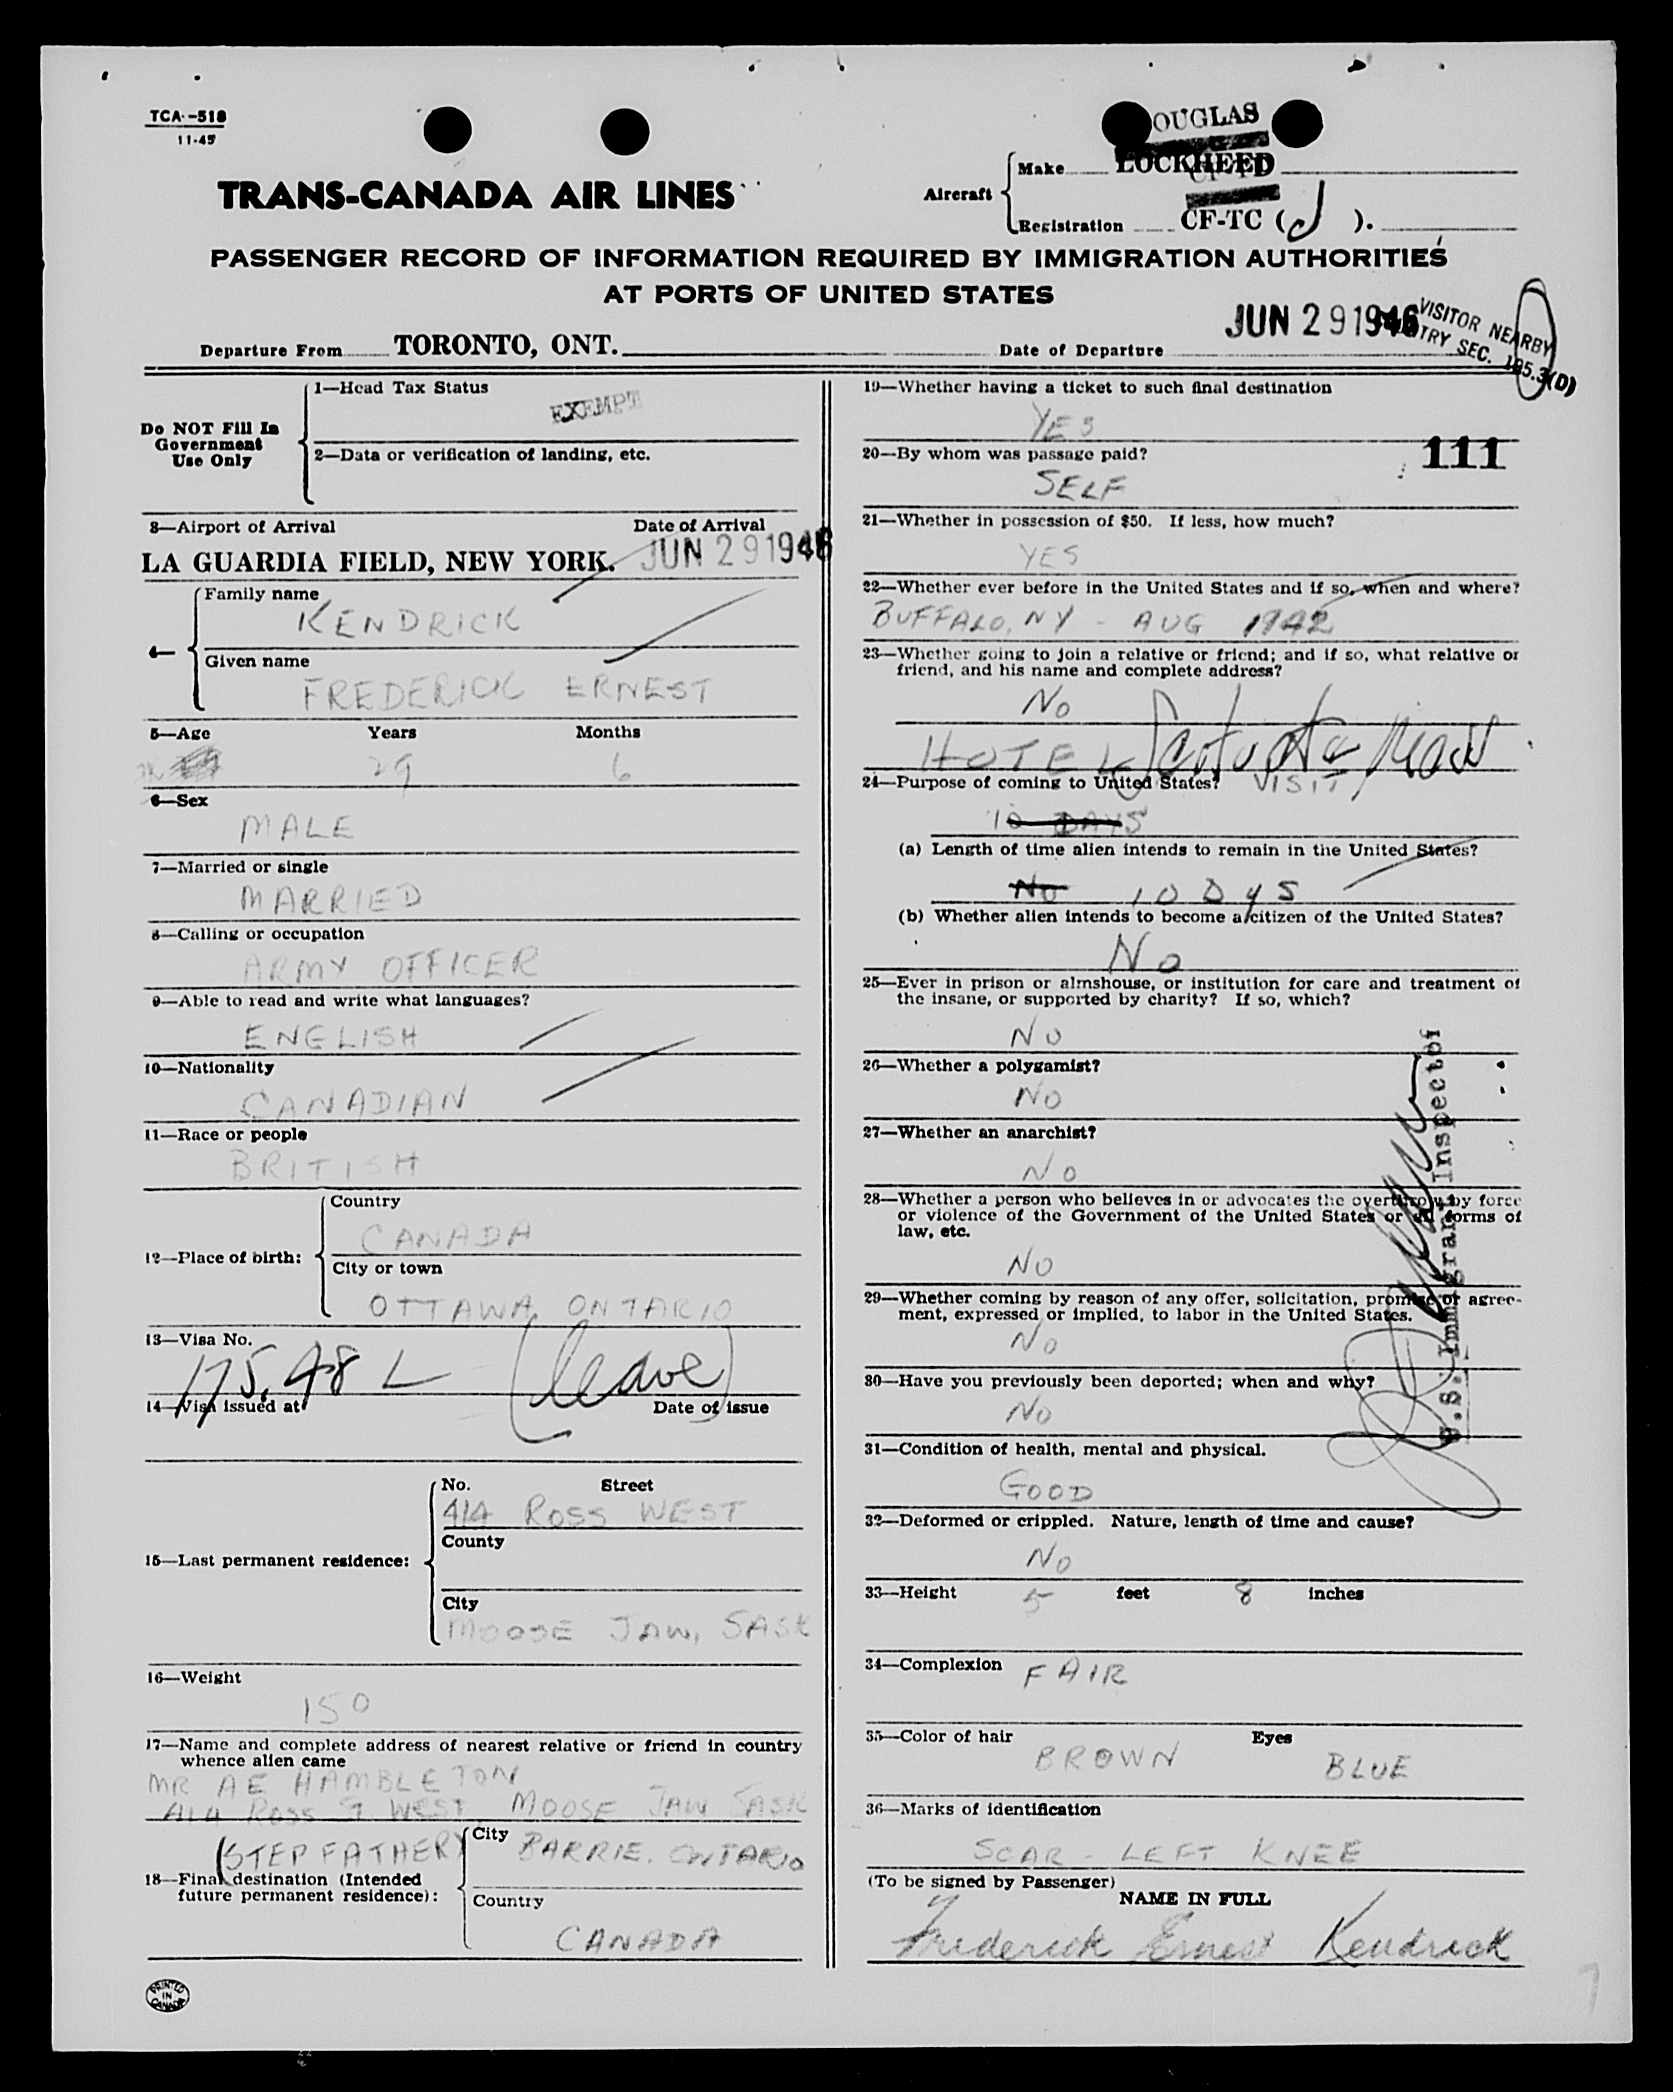 TCA-518
11-45
DOUGLAS
Aircraft Make LOCKHEED
Registration CF-TC ( J ).
TRANS-CANADA AIR LINES
PASSENGER RECORD OF INFORMATION REQUIRED BY IMMIGRATION AUTHORITIES
AT PORTS OF UNITED STATES
Departure From TORONTO, ONT.
Date of Departure JUN 29 1946
VISITOR NEARBY
SEC. 105.3(D)
Do NOT Fill In
Government
Use Only
1—Head Tax Status
EXEMPT
2—Data or verification of landing, etc.
3—Airport of Arrival Date of Arrival
LA GUARDIA FIELD, NEW YORK. JUN 29 1946
4—
Family name
KENDRICK
Given name
FREDERICK ERNEST
5—Age Years Months
29 6
6—Sex
MALE
7—Married or single
MARRIED
8—Calling or occupation
ARMY OFFICER
9—Able to read and write what languages?
ENGLISH
10—Nationality
CANADIAN
11—Race or people
BRITISH
12—Place of birth:
Country
CANADA
City or town
OTTAWA, ONTARIO
13—Visa No.
175.48 L (leave)
14—Visa issued at Date of issue
15—Last permanent residence:
No. Street
414 ROSS WEST
County
City
MOOSE JAW, SASK
16—Weight
150
17—Name and complete address of nearest relative or friend in country
whence alien came
MR AE HAMBLETON
414 ROSS ST. WEST MOOSE JAW SASK
(STEP FATHER)
18—Final destination (Intended
future permanent residence):
City BARRIE. ONTARIO
Country
CANADA
PRINTED
IN
CANADA
19—Whether having a ticket to such final destination
YES
20—By whom was passage paid?
111
SELF
21—Whether in possession of $50. If less, how much?
YES
22—Whether ever before in the United States and if so, when and where?
BUFFALO, NY - AUG 1942
23—Whether going to join a relative or friend; and if so, what relative or
friend, and his name and complete address?
NO
HOTEL
24—Purpose of coming to United States? VISIT
10 DAYS
(a) Length of time alien intends to remain in the United States?
No 10 Dys
(b) Whether alien intends to become a citizen of the United States?
No
25—Ever in prison or almshouse, or institution for care and treatment of
the insane, or supported by charity? If so, which?
NO
26—Whether a polygamist?
NO
27—Whether an anarchist?
NO
28—Whether a person who believes in or advocates the overthrow by force
or violence of the Government of the United States or all forms of
law, etc.
NO
29—Whether coming by reason of any offer, solicitation, promise or agree-
ment, expressed or implied, to labor in the United States.
NO
30—Have you previously been deported; when and why?
NO
31—Condition of health, mental and physical.
GOOD
32—Deformed or crippled. Nature, length of time and cause?
NO
33—Height 5 feet 8 inches
34—Complexion FAIR
35—Color of hair Eyes
BROWN BLUE
36—Marks of identification
SCAR - LEFT KNEE
(To be signed by Passenger)
NAME IN FULL
Frederick Ernest Kendrick
U.S. Immigrant Inspector